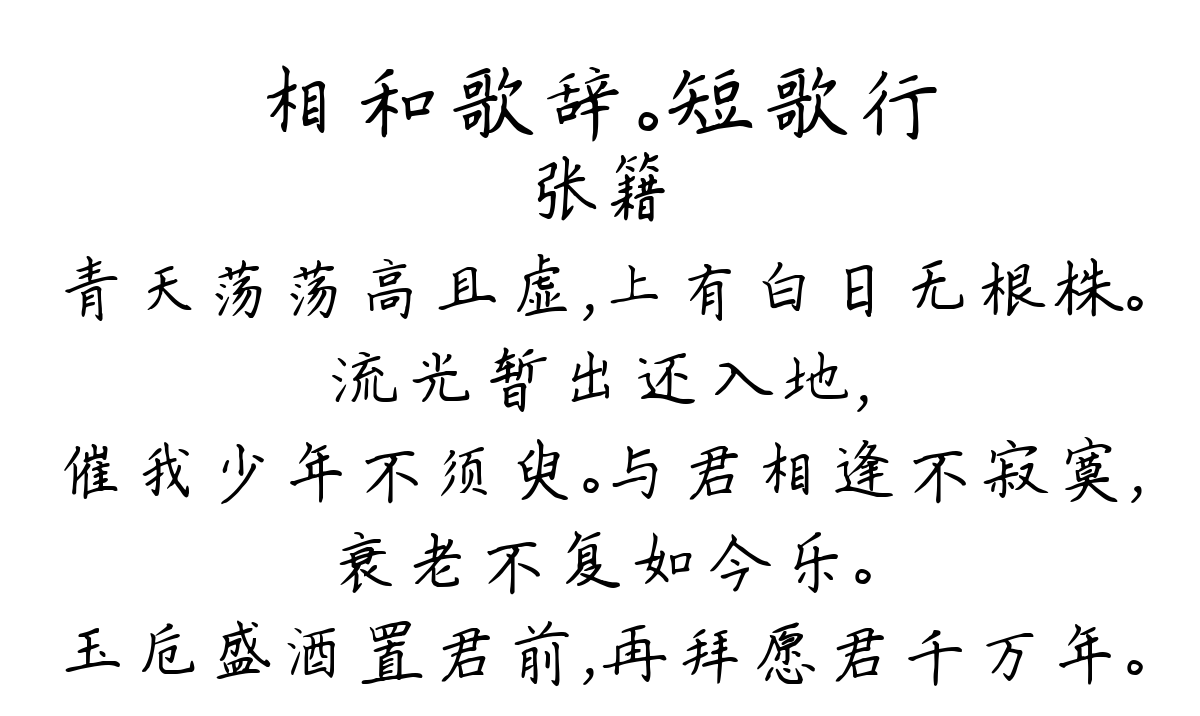 相和歌辞。短歌行
张籍
青天荡荡高且虚,上有白日无根株。
流光暂出还入地,
催我少年不须臾。与君相逢不寂寞,
衰老不复如今乐。
玉卮盛酒置君前,再拜愿君千万年。